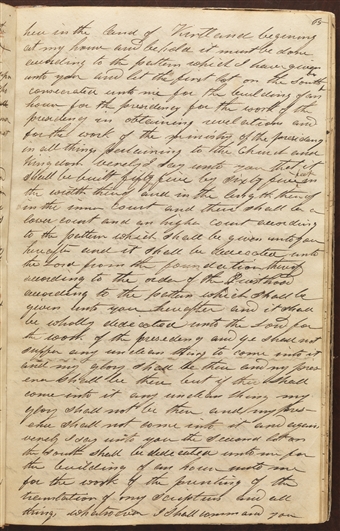 65
here in the land of Kirtland begining
at my house and behold it must be done
according to the pattern which I have given
unto you and let the first lot on the South
consecrated unto me for the building of an
house for the presidency for the work of the
presidency in obtaining revelations and
for the work of the ministry of the presidency
in all things pertaining to the Church and
Kingdom verely I say unto you that it
shall be built fifty five by sixty five feet in
the width thereof and in the length thereof
in the inner court and there shall be a
lower court and an higher court according
to the pattern which shall be given unto you
hereafter and it shall be dedicated unto
the Lord from the foundation thereof
according to the order of the Priesthood
according to the pattern which shall be
given unto you hereafter and it shall
be wholly dedicated unto the Lord for
the work of the presedency and ye shall not
suffer any unclean thing to come into it
and my glory shall be there and my pres
ence shall be there but if there shall
come into it any unclean thing my
glory shall not be there and my pres-
ence shall not come into it and again
verely I say unto you the second lot on
the South shall be dedicated unto me for
the building of an house unto me
for the work of the printing of the
translation of my Scriptures and all
things whatsoever I shall command you